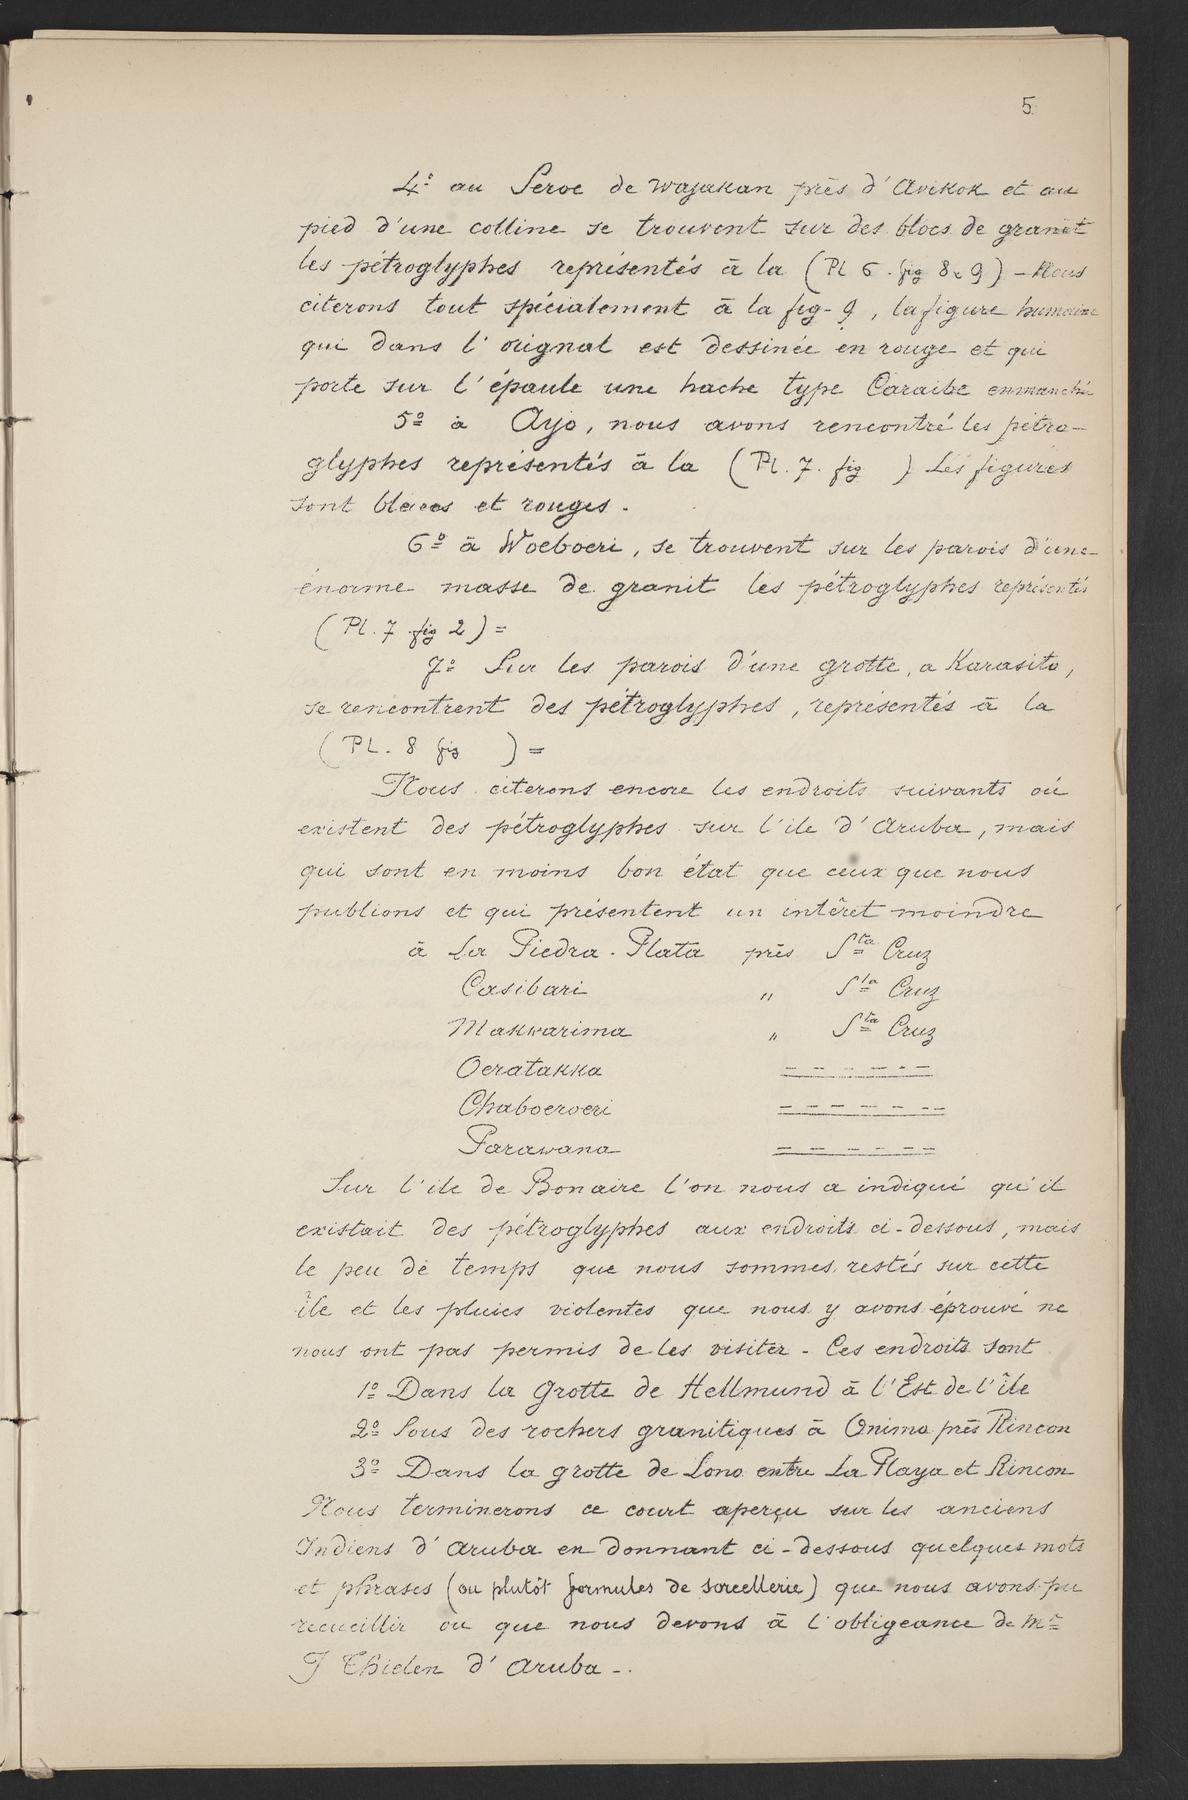 5
4º au Seroe de Wajukan près d'Avikok et au
pied d'une colline se trouvent sur des blocs de granit
les pétroglyphes représentés à la (Pl 6. fig 8 & 9) – Nous
citerons tout spécialement à la fig. 9, la figure humaine
qui dans l'orignal est dessinée en rouge et qui
porte sur l'épaule une hache type Caraibe enmanché
5º à Ayo, nous avons rencontré les pétro-
glyphes représentés à la (Pl. 7. fig ) Les figures
sont blaces et rouges.
6º à Woeboeri, se trouvent sur les parois d'une
énorme masse de granit les pétroglyphes représentés
(Pl. 7 fig 2) =
7º Sur les parois d'une grotte, a Karasito,
se rencontrent des pétroglyphes, représentés à la
(PL. 8 fig ) =
Nous citerons encore les endroits suivants où
existent des pétroglyphes sur l'ile d'Aruba, mais
qui sont en moins bon état que ceux que nous
publions et qui présentent un intêret moindre
à La Piedra. Plata près Sta Cruz
Casibari " Sta Cruz
Makwarima " Sta Cruz
Oeratakka – – – – – –
Chaboeroeri – – – – – – –
Parawana – – – – – –
Sur l'ile de Bonaire l'on nous a indiqué qu'il
existait des pétroglyphes aux endroits ci-dessous, mais
le peu de temps que nous sommes restés sur cette
île et les pluies violentes que nous y avons éprouvé ne
nous ont pas permis de les visiter – Ces endroits sont
1º Dans la Grotte de Hellmund à l'Est de l'île
2º Sous des rochers granitiques à Onima près Rincon
3º Dans la grotte de Lono entre La Playa et Rincon
Nous terminerons ce court aperçu sur les anciens
Indiens d'Aruba en donnant ci-dessous quelques mots
et phrases (ou plutôt formules de sorcellerie) que nous avons pu
recueillir ou que nous devons à l'obligeance de Mr
J Thielen d'Aruba –.